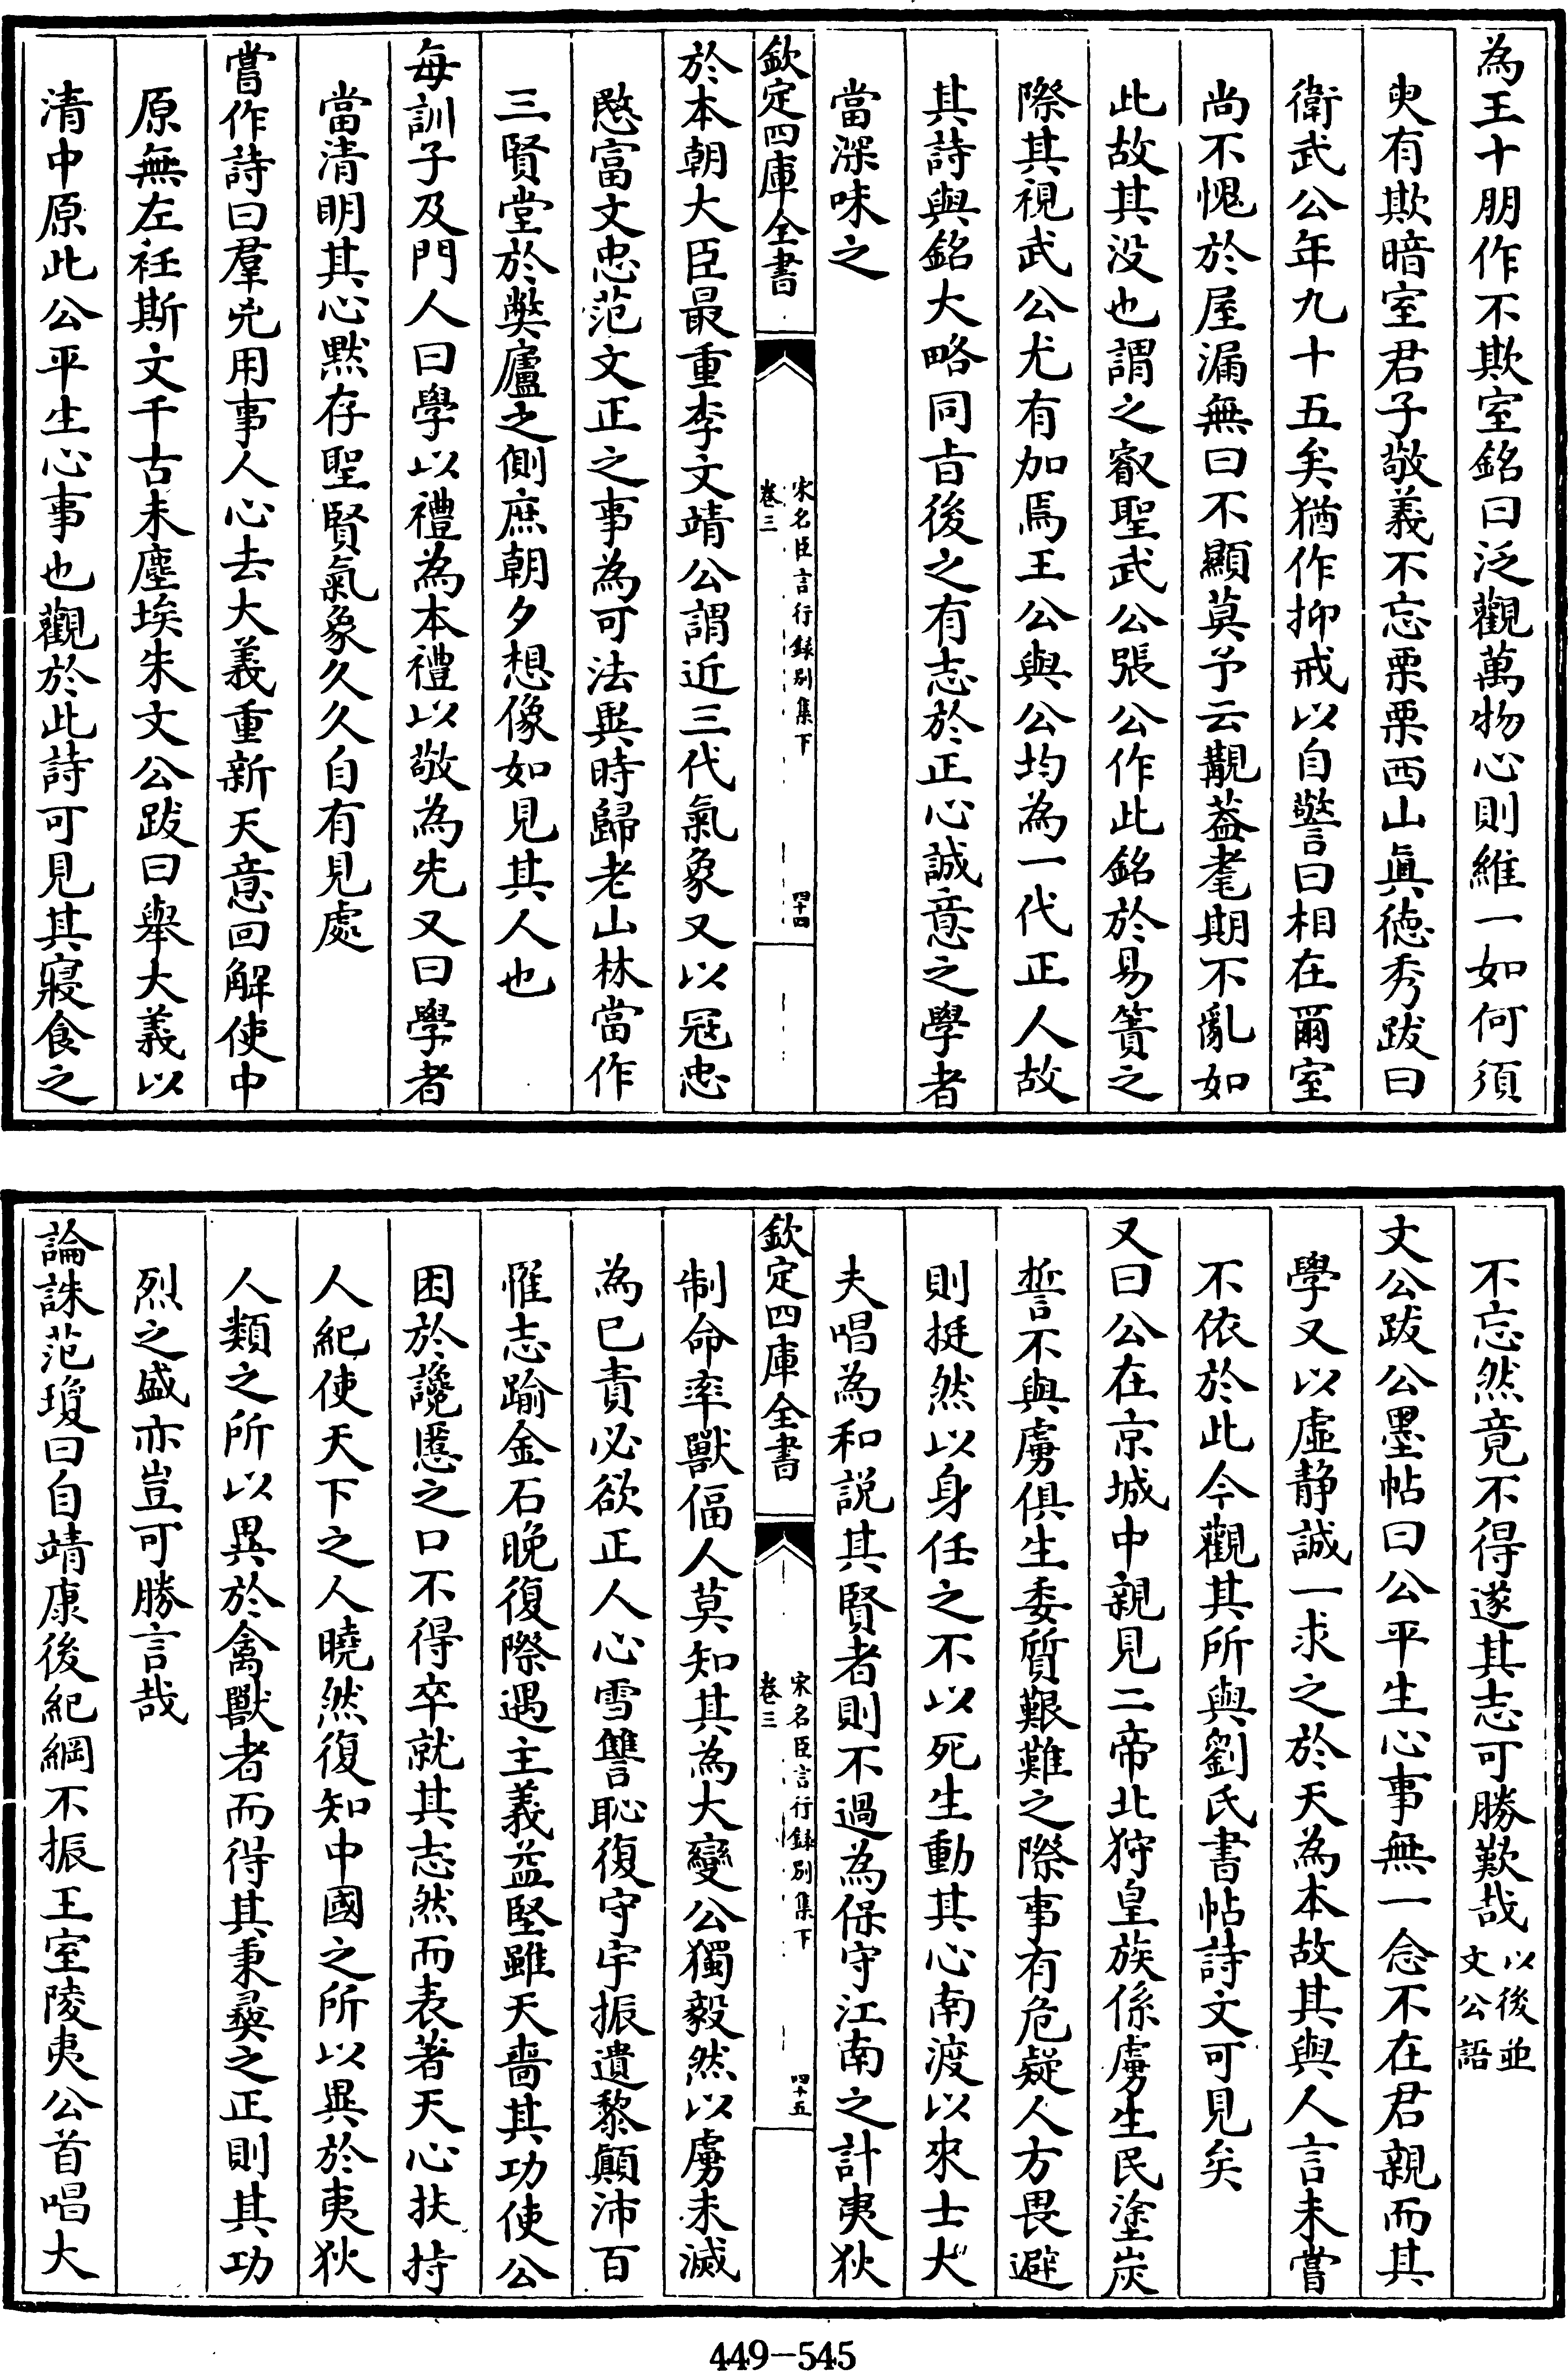 為王十朋作不欺室銘曰泛觀萬物心則維一如何須
臾有欺暗室君子敬義不忘栗栗西山眞徳秀跋曰
衛武公年九十五矣猶作抑戒以自警曰相在爾室
尚不愧於屋漏無曰不顯莫予云覯葢耄期不亂如
此故其没也謂之睿聖武公張公作此銘於易簀之
際其視武公尤有加焉王公與公均為一代正人故
其詩與銘大略同㫖後之有志於正心誠意之學者
當深味之
欽定四庫全書
宋名臣言行録别集下
卷三
四十四
於本朝大臣最重李文靖公謂近三代氣象又以冦忠
愍富文忠范文正之事為可法異時歸老山林當作
三賢堂於獘廬之側庶朝夕想像如見其人也
每訓子及門人曰學以禮為本禮以敬為先又曰學者
當清明其心黙存聖賢氣象久久自有見處
嘗作詩曰羣兇用事人心去大義重新天意回解使中
原無左衽斯文千古未塵埃朱文公跋曰舉大義以
清中原此公平生心事也觀於此詩可見其寢食之
不忘然竟不得遂其志可勝歎哉以後並文公語
文公跋公墨帖曰公平生心事無一念不在君親而其
學又以虛静誠一求之於天為本故其與人言未嘗
不依於此今觀其所與劉氏書帖詩文可見矣
又曰公在京城中親見二帝北狩皇族係虜生民塗炭
誓不與虜俱生委質艱難之際事有危疑人方畏避
則挺然以身任之不以死生動其心南渡以來士大
夫唱為和説其賢者則不過為保守江南之計夷狄
欽定四庫全書
宋名臣言行録别集下
卷三
四十五
制命率獸偪人莫知其為大變公獨毅然以虜未滅
為已責必欲正人心雪讐恥復守宇振遺黎顛沛百
惟志踰金石晚復際遇主義益堅雖天嗇其功使公
困於讒慝之口不得卒就其志然而表著天心扶持
人紀使天下之人曉然復知中國之所以異於夷狄
人類之所以異於禽獸者而得其秉彜之正則其功
烈之盛亦豈可勝言哉
論誅范瓊曰自靖康後紀綱不振王室陵夷公首唱大
449-545